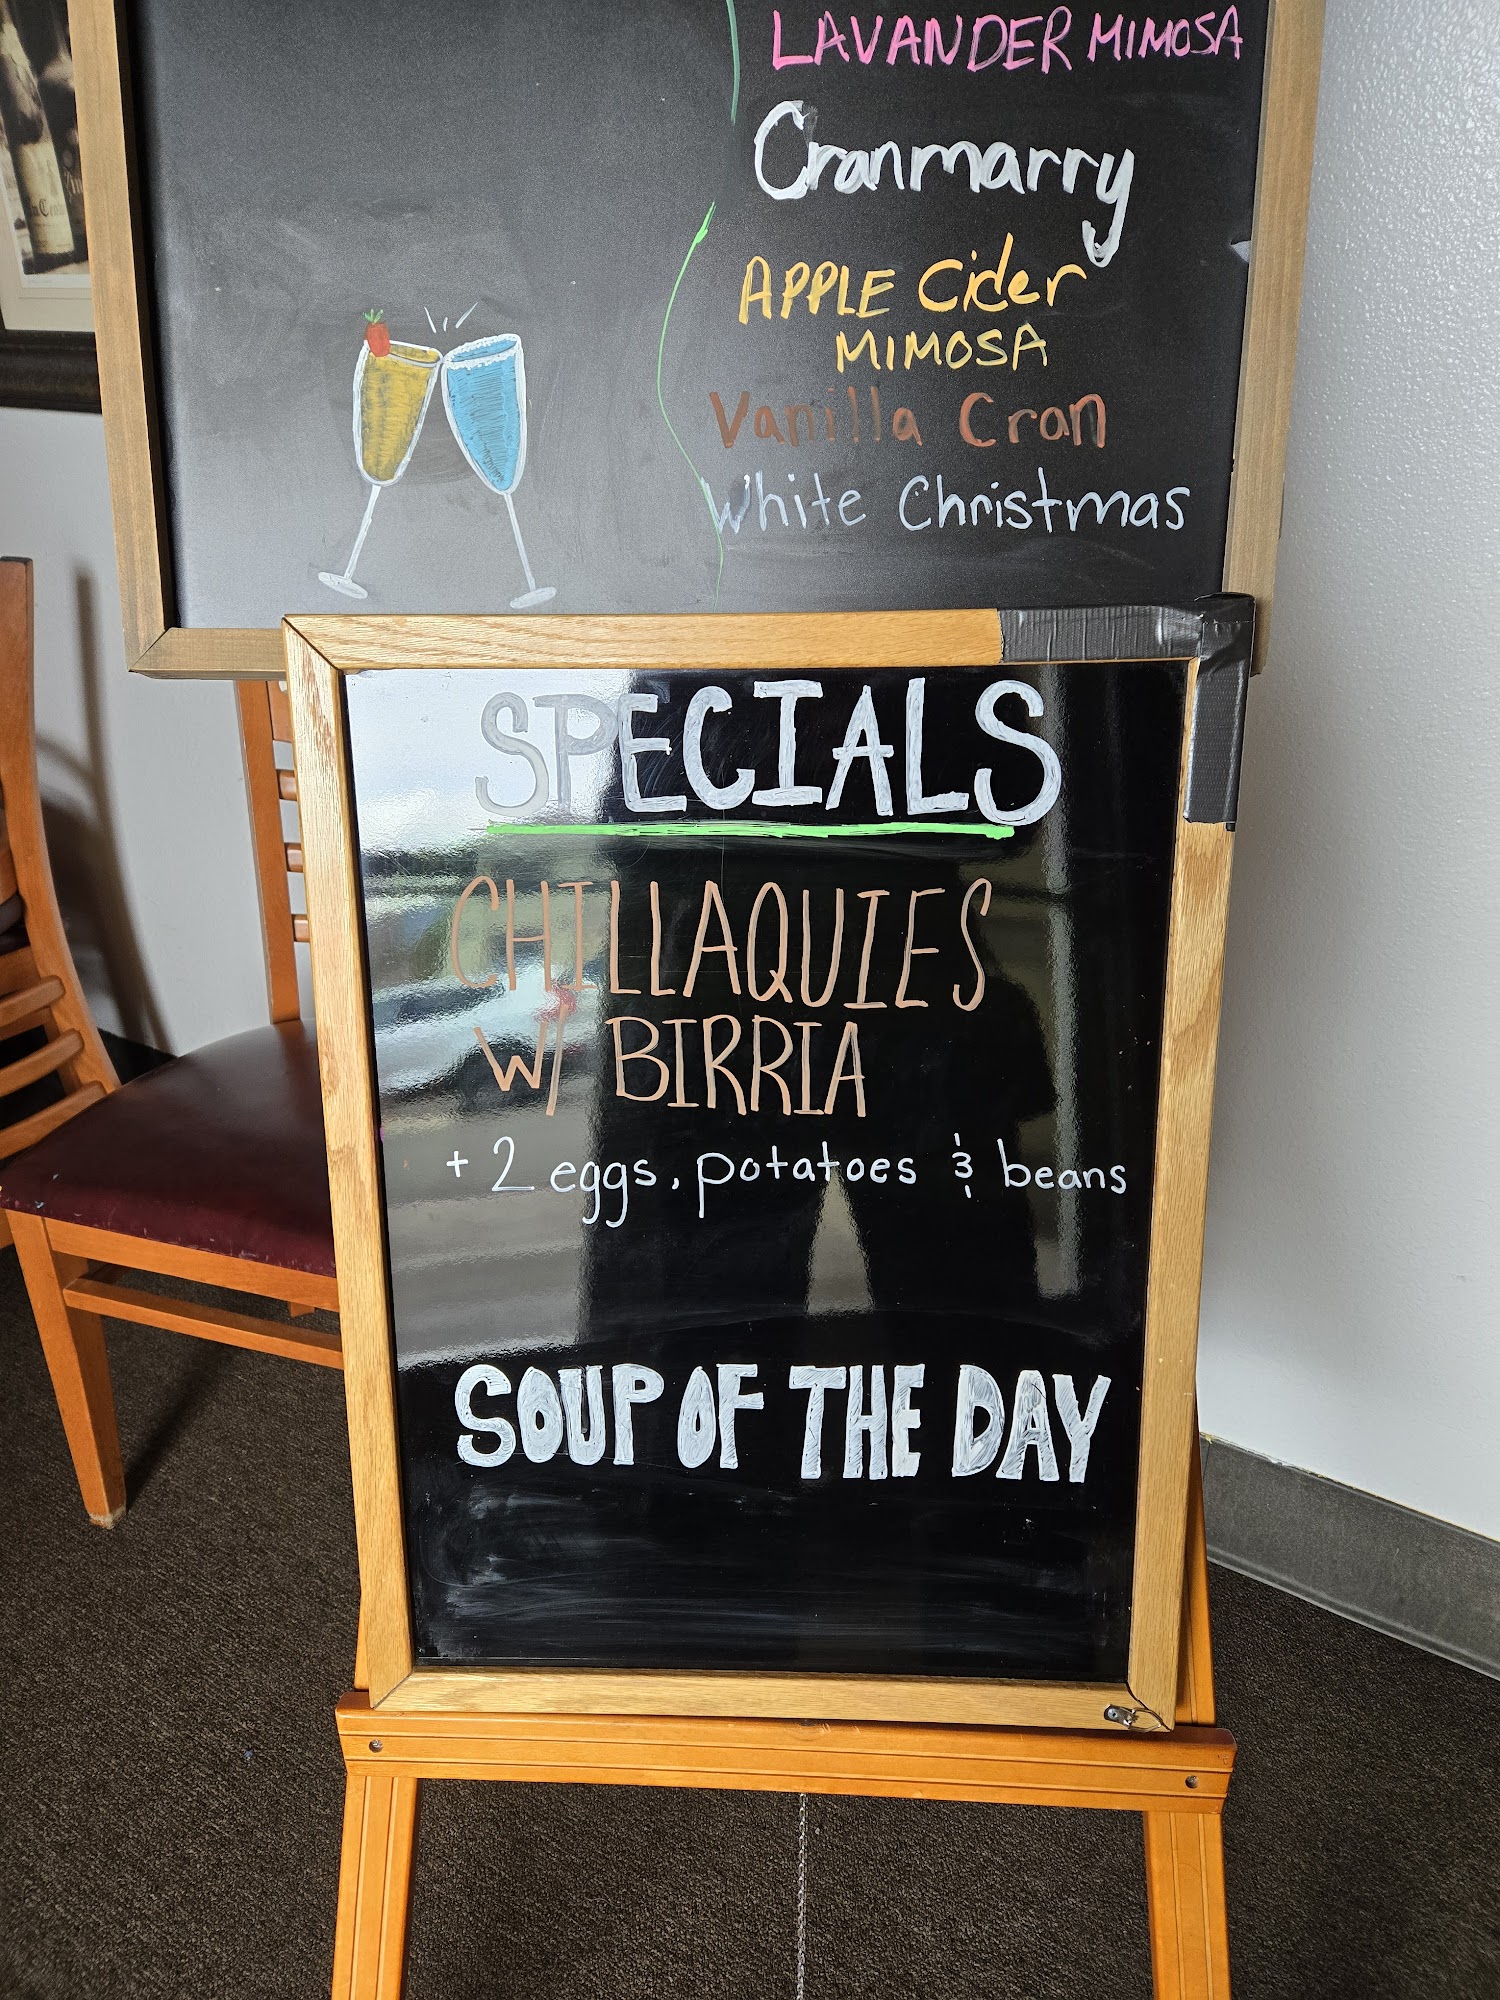 LAVANDER MIMOSA
Cranmarry
APPLE Cider
MIMOSA
Vanilla Cran
White Christmas
SPECIALS
CHILLAQUIES
W/ BIRRIA
+ 2 eggs, potatoes & beans
SOUP OF THE DAY